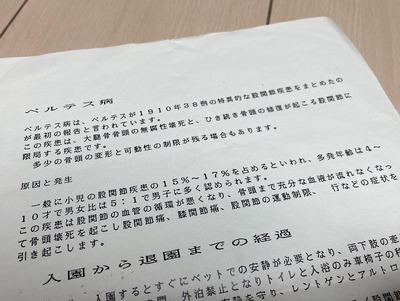 ペルテス病
ペルテス病は、ペルテスが1910年38例の特異的な股関節疾患をまとめたの
が最初の報告と言われています。
この疾患は、大腿骨骨頭の無腐性壊死と、ひき続き骨頭の修復が起こる股関節に
限局する疾患です。
多少の骨頭の変形と可動性の制限が残る場合もあります。
原因と発生
一般に小児の股関節疾患の15%～17%を占めるといわれ、多発年齢は4～
10才で男女比は5:1で男子に多く認められます。
この疾患は股関節の血管の循環が悪くなり、骨頭まで充分な血液が流れなくなっ
て骨頭壊死を起こし股関節痛、膝関節痛、股関節の運動制限、 行などの症状を
引き起こします。
入園から退園までの経過
入園するとすぐにベットでの安静が必要となり、両下肢の亜
外泊禁止となりトイレと入浴のみ車椅子の移
安静を守り、レントゲンとアルトロ